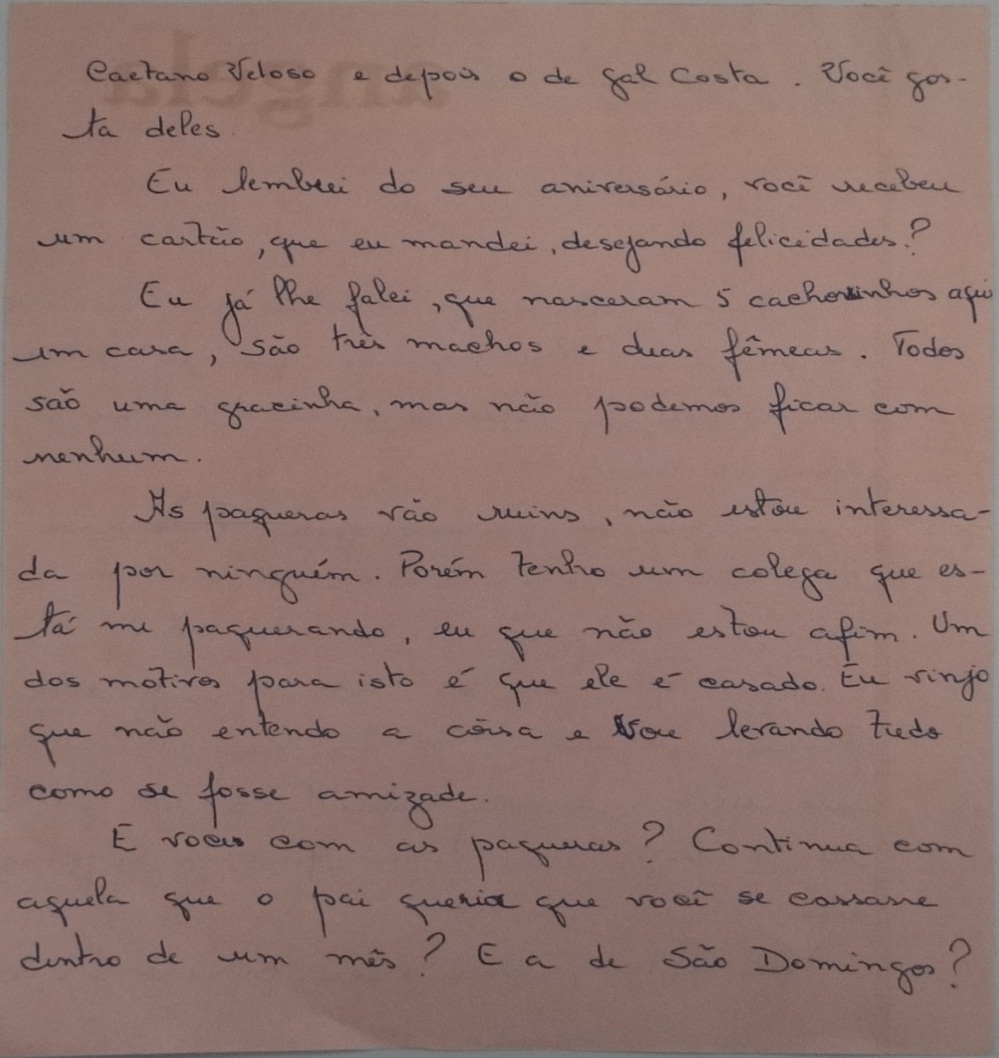 Caetano Veloso e depois o de Gal Costa. Você gos-
ta deles.
Eu lembrei do seu aniversário, você recebeu
um cartão, que eu mandei, desejando felicidades?
Eu já lhe falei, que nasceram 5 cachorrinhos aqui
em casa, são três machos e duas fêmeas. Todos
são uma gracinha, mas não podemos ficar com
nenhum.
As paqueras vão ruins, não estou interessa-
da por ninguém. Porém tenho um colega que es-
tá me paquerando, eu que não estou afim. Um
dos motivos para isto é que ele é casado. Eu vinjo
que não entendo a coisa e vou levando tudo
como se fosse amizade.
E voces com as paqueras? Continua com
aquela que o pai queria que você se cassasse
dentro de um mês? E a de São Domingos?
angela